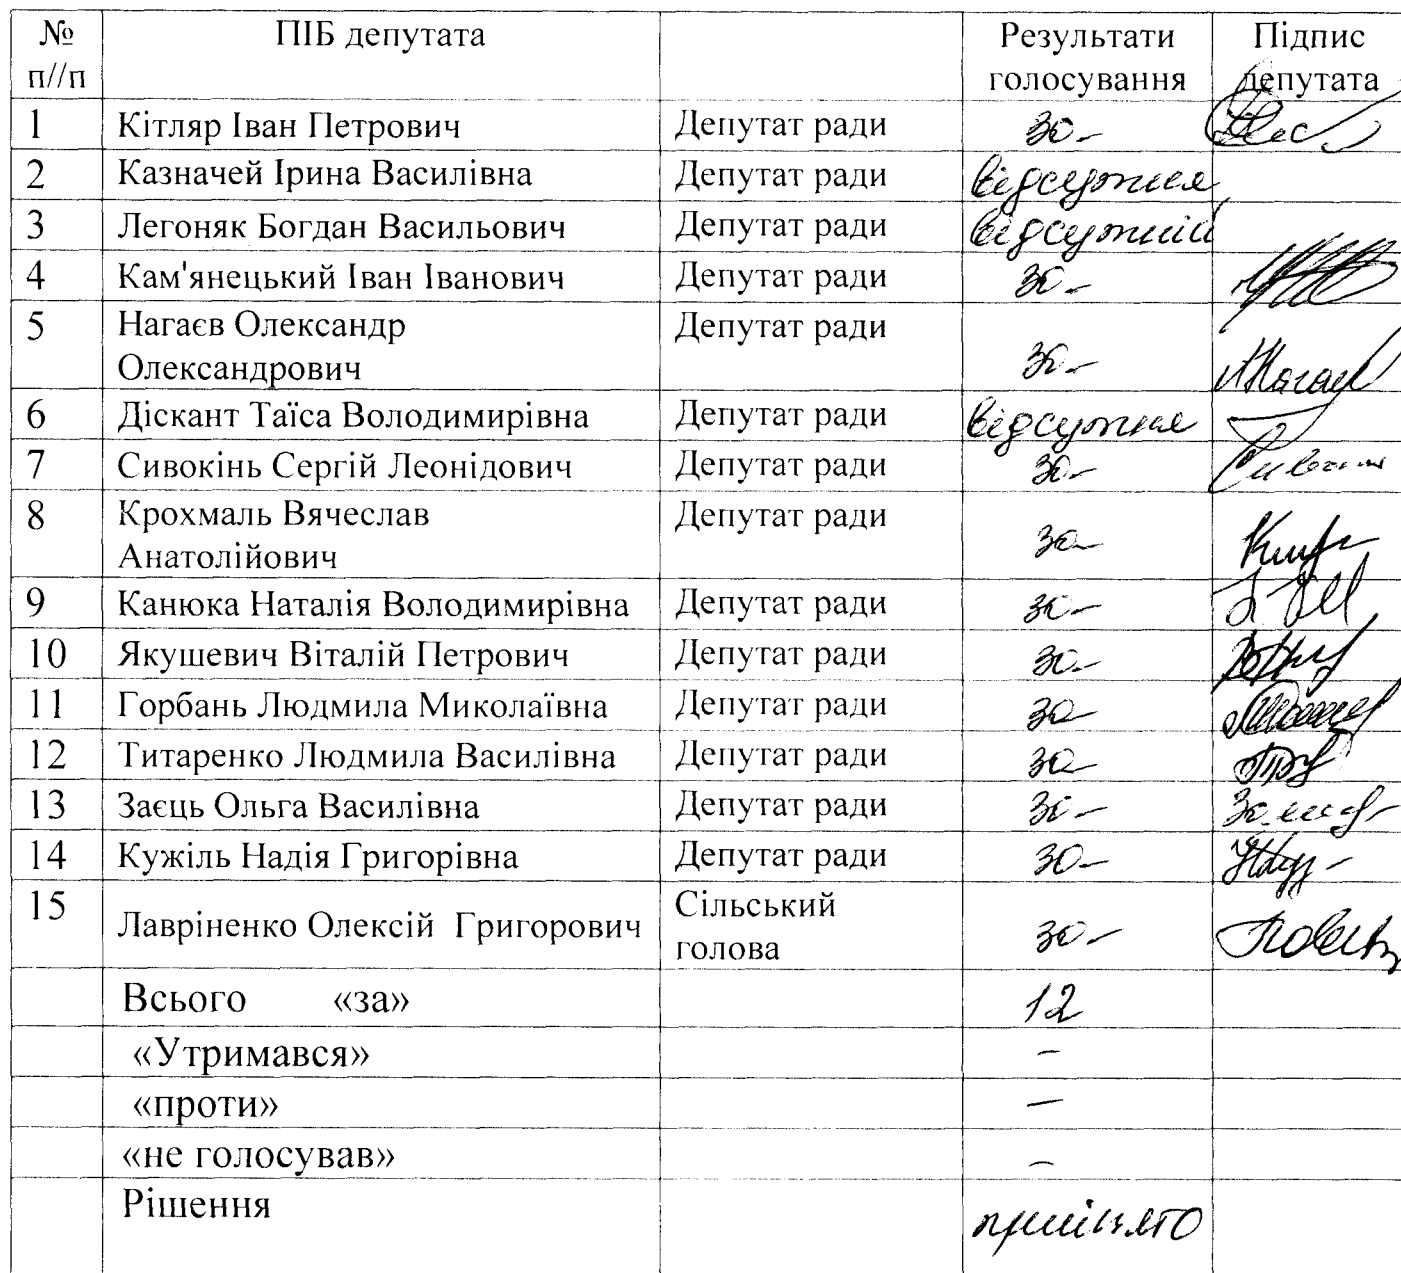 № ПІБ депутата Результати Підпис
п//п голосування депутата
1 Кітляр Іван Петрович Депутат ради за-
2 Казначей Ірина Василівна Депутат ради відсутня
3 Легоняк Богдан Васильович Депутат ради відсутній
4 Кам'янецький Іван Іванович Депутат ради за-
5 Нагаєв Олександр Депутат ради
Олександрович за-
6 Діскант Таїса Володимирівна Депутат ради відсутня
7 Сивокінь Сергій Леонідович Депутат ради за-
8 Крохмаль Вячеслав Депутат ради
Анатолійович за-
9 Канюка Наталія Володимирівна Депутат ради за-
10 Якушевич Віталій Петрович Депутат ради за-
11 Горбань Людмила Миколаївна Депутат ради за-
12 Титаренко Людмила Василівна Депутат ради за-
13 Заєць Ольга Василівна Депутат ради за-
14 Кужіль Надія Григорівна Депутат ради за-
15 Лавріненко Олексій Григорович Сільський за-
голова
Всього «за» 12
«Утримався» -
«проти» -
«не голосував» -
Рішення прийнято